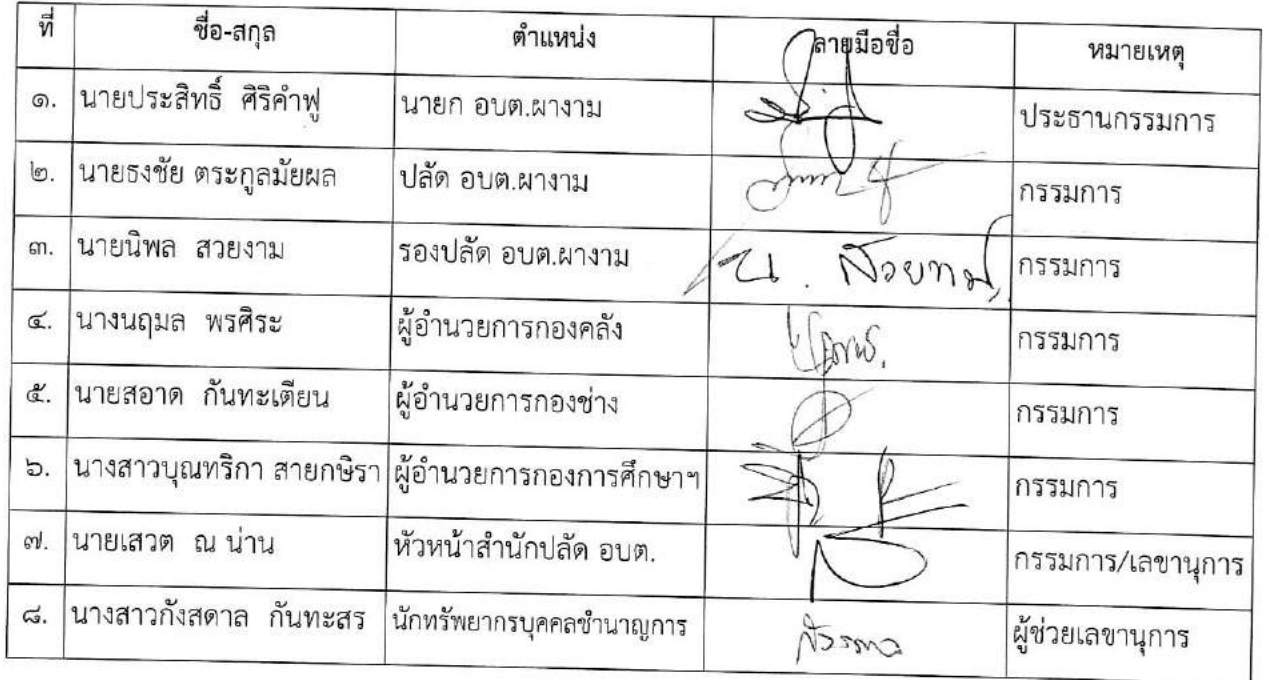 ที่ ชื่อ-สกุล ตำแหน่ง ลายมือชื่อ หมายเหตุ
๑. นายประสิทธิ์ ศิริคำฟู นายก อบต.ผางาม ประธานกรรมการ
๒. นายธงชัย ตระกูลมัยผล ปลัด อบต.ผางาม กรรมการ
๓. นายนิพล สวยงาม รองปลัด อบต.ผางาม น. สวยงาม กรรมการ
๔. นางนฤมล พรศิระ ผู้อำนวยการกองคลัง กรรมการ
๕. นายสอาด กันทะเตียน ผู้อำนวยการกองช่าง กรรมการ
๖. นางสาวบุณทริกา สายกษิรา ผู้อำนวยการกองการศึกษาฯ กรรมการ
๗. นายเสวต ณ น่าน หัวหน้าสำนักปลัด อบต. กรรมการ/เลขานุการ
๘. นางสาวกังสดาล กันทะสร นักทรัพยากรบุคคลชำนาญการ ผู้ช่วยเลขานุการ